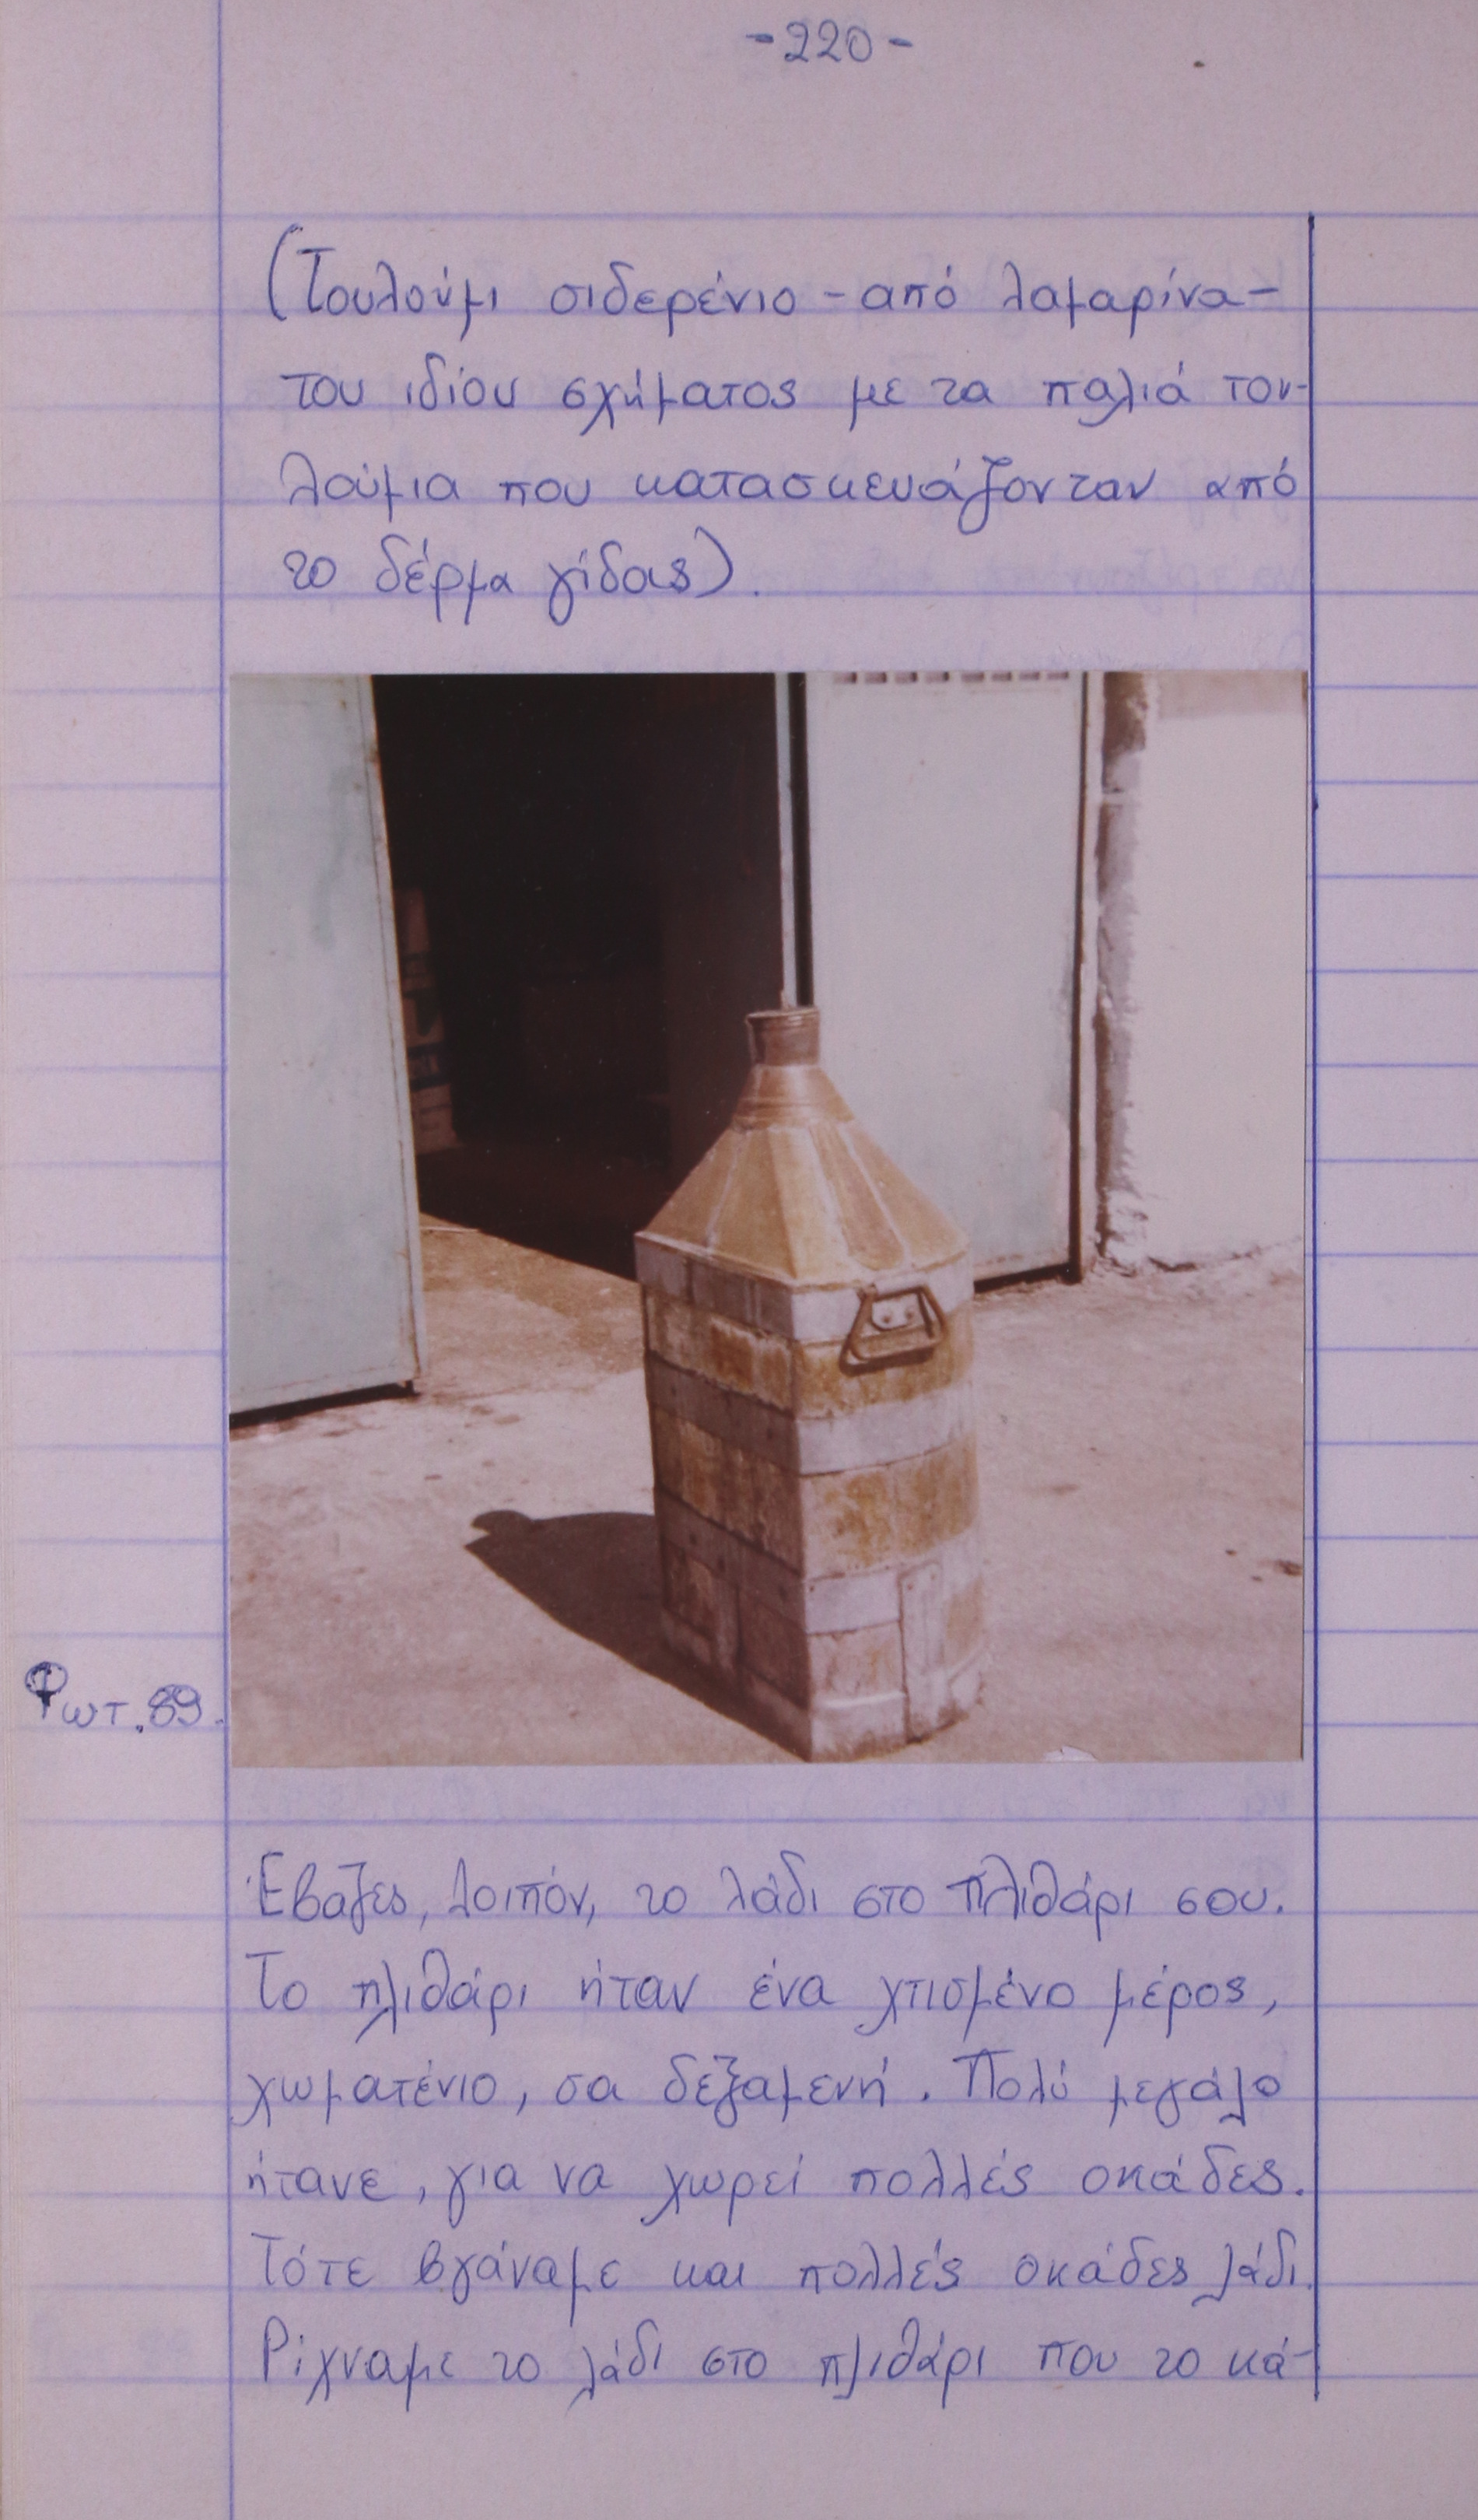 -220-
(Τουλούμι σιδερένιο - από λαμαρίνα -
του ιδίου σχήματος με τα παλιά του-
λούμια που κατασκευάζονταν από
το δέρμα γίδας).
Φωτ. 89.
Έβαζες, λοιπόν, το λάδι στο πλιθάρι σου.
Το πλιθάρι ήταν ένα χτισμένο μέρος,
χωματένιο, σα δεξαμενή. Πολύ μεγάλο
ήτανε, για να χωρεί πολλές οκάδες.
Τότε βγάναμε και πολλές οκάδες λάδι.
Ρίχναμε το λάδι στο πλιθάρι που το κά-